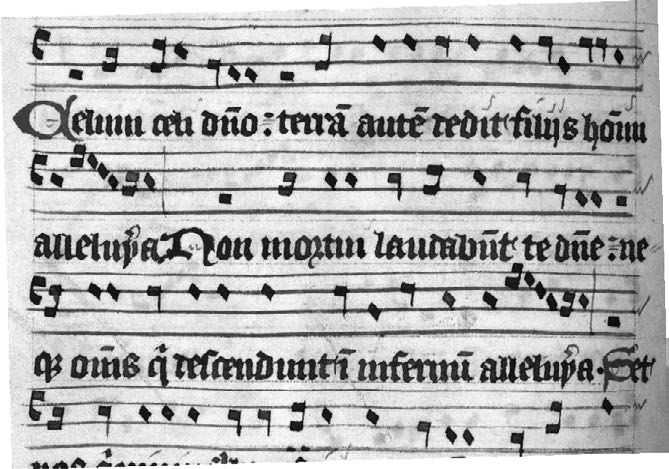 Celum celi dn̄o : terrā autē dedit filijs hoīm
alleluya Non mortui laudabūt te dn̄e : ne
qȝ om̄s q̄ descendunt ī infernū alleluya . Set